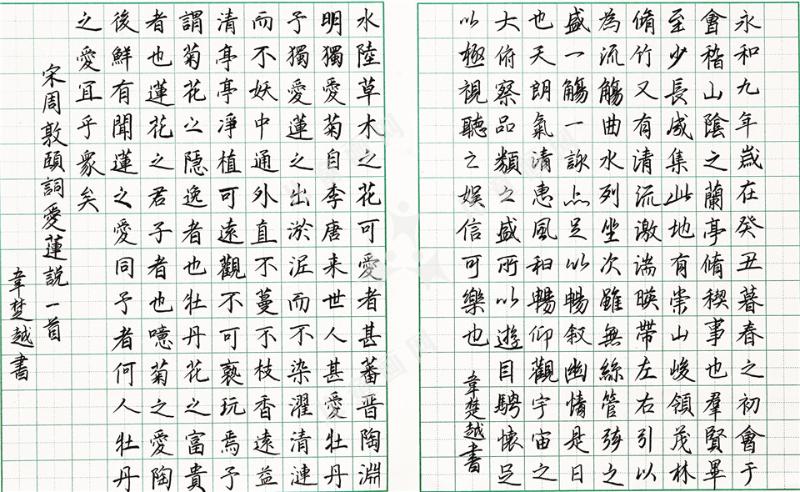 永和九年歲在癸丑暮春之初會于
會稽山陰之蘭亭脩稧事也羣賢畢
至少長咸集此地有崇山峻領茂林
脩竹又有清流激湍暎帶左右引以
為流觴曲水列坐次雖無絲管弦之
盛一觴一詠亦足以暢叙幽情是日
也天朗氣清惠風和暢仰觀宇宙之
大俯察品類之盛所以遊目騁懷足
以極視聽之娛信可樂也
韋楚越書
水陸草木之花可愛者甚蕃晉陶淵
明獨愛菊自李唐来世人甚愛牡丹
予獨愛蓮之出淤泥而不染濯清漣
而不妖中通外直不蔓不枝香遠益
清亭亭凈植可遠觀不可褻玩焉予
謂菊花之隱逸者也牡丹花之富貴
者也蓮花之君子者也噫菊之愛陶
後鮮有聞蓮之愛同予者何人牡丹
之愛宜乎衆矣
宋周敦頤詞愛蓮説一首
韋楚越書